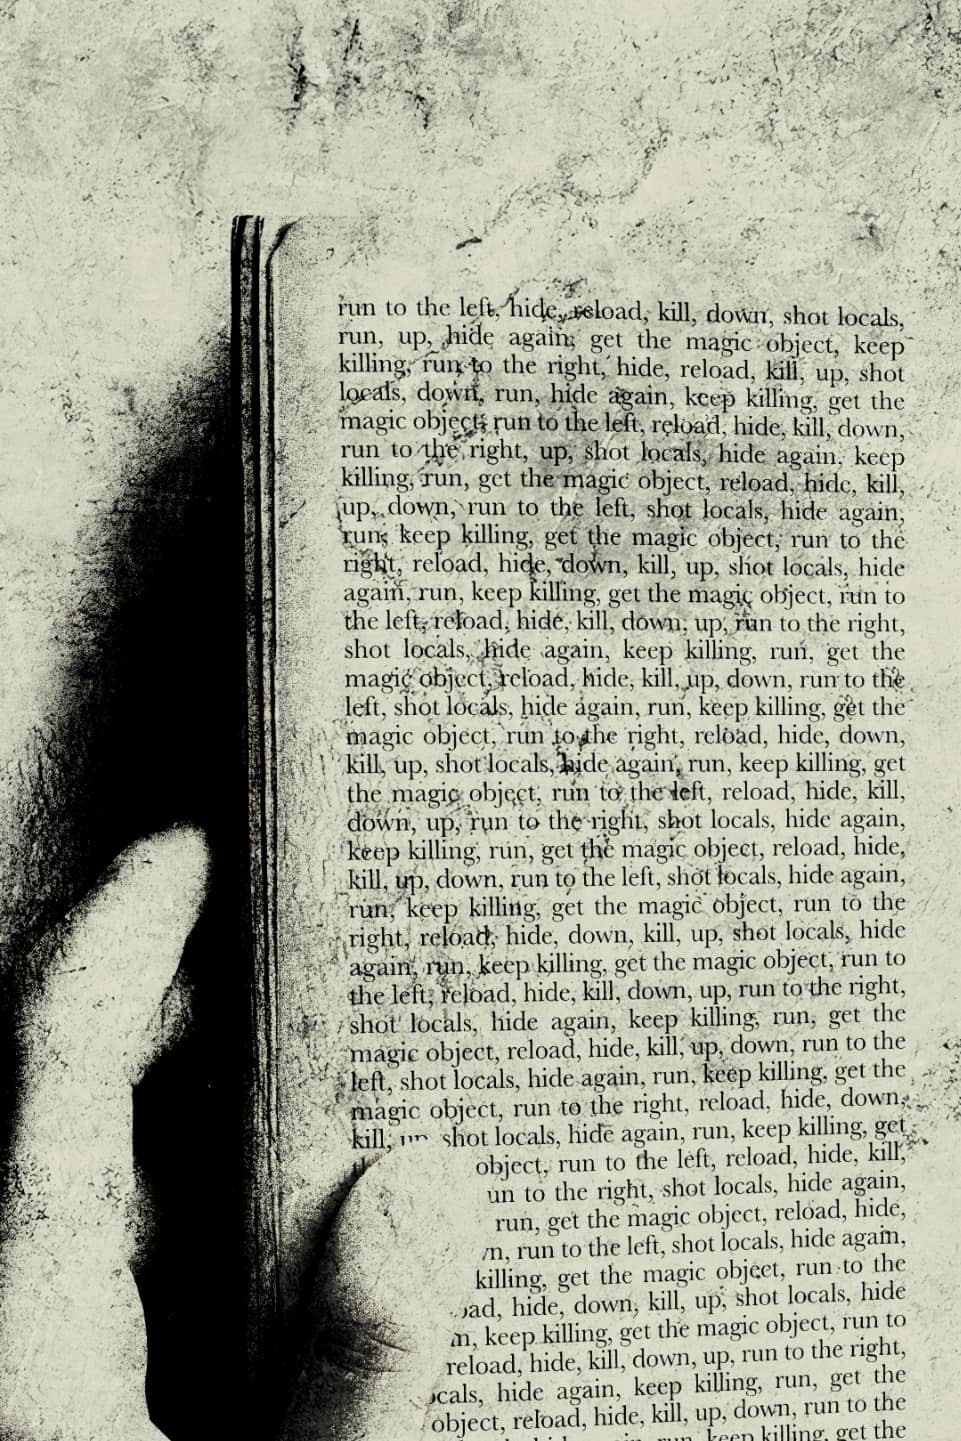 run to the left, hide, reload, kill, down, shot locals,
run, up, hide again, get the magic object, keep
killing, run to the right, hide, reload, kill, up, shot
locals, down, run, hide again, keep killing, get the
magic object, run to the left, reload, hide, kill, down,
run to the right, up, shot locals, hide again, keep
killing, run, get the magic object, reload, hide, kill,
up, down, run to the left, shot locals, hide again,
run, keep killing, get the magic object, run to the
right, reload, hide, down, kill, up, shot locals, hide
again, run, keep killing, get the magic object, run to
the left, reload, hide, kill, down, up, run to the right,
shot locals, hide again, keep killing, run, get the
magic object, reload, hide, kill, up, down, run to the
left, shot locals, hide again, run, keep killing, get the
magic object, run to the right, reload, hide, down,
kill, up, shot locals, hide again, run, keep killing, get
the magic object, run to the left, reload, hide, kill,
down, up, run to the right, shot locals, hide again,
keep killing, run, get the magic object, reload, hide,
kill, up, down, run to the left, shot locals, hide again,
run, keep killing, get the magic object, run to the
right, reload, hide, down, kill, up, shot locals, hide
again, run, keep killing, get the magic object, run to
the left, reload, hide, kill, down, up, run to the right,
shot locals, hide again, keep killing, run, get the
magic object, reload, hide, kill, up, down, run to the
left, shot locals, hide again, run, keep killing, get the
magic object, run to the right, reload, hide, down,
kill, shot locals, hide again, run, keep killing, get
object, run to the left, reload, hide, kill,
to the right, shot locals, hide again,
run, get the magic object, reload, hide,
run to the left, shot locals, hide again,
killing, get the magic object, run to the
hide, down, kill, up, shot locals, hide
keep killing, get the magic object, run to
reload, hide, kill, down, up, run to the right,
hide again, keep killing, run, get the
object, reload, hide, kill, up, down, run to the
run, keep killing, get the